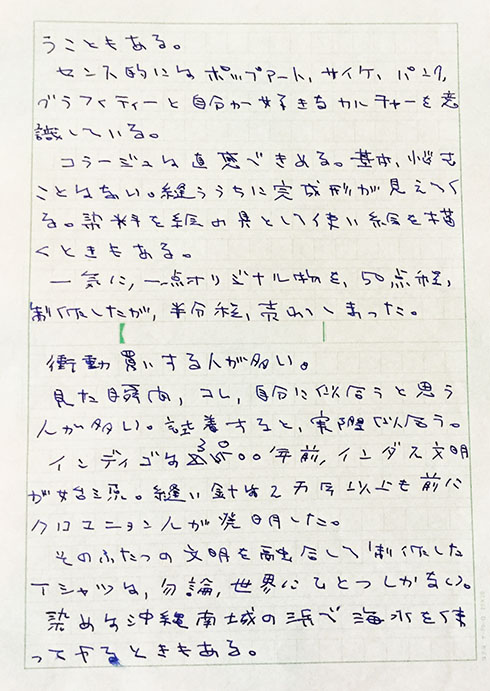 うこともある。
センス的にはポップアート、サイケ、パンク、
グラフィティーと自分が好きなカルチャーを意
識している。
コラージュは直感できめる。基本、悩む
ことはない。縫ううちに完成形が見えてく
る。染料を絵の具として使い絵を描
くときもある。
一気に、一点オリジナル物を、50点程、
制作したが、半分程、売れてしまった。
衝動買いする人が多い。
見た瞬間、コレ、自分に似合うと思う
人が多い。試着すると、実際似合う。
インディゴは3000年前、インダス文明
が始まり。縫い針は2万年以上も前に
クロマニョン人が発明した。
そのふたつの文明を融合して制作した
Tシャツは、勿論、世界にひとつしかない。
染めは沖縄南城の浜で海水を使
ってやるときもある。